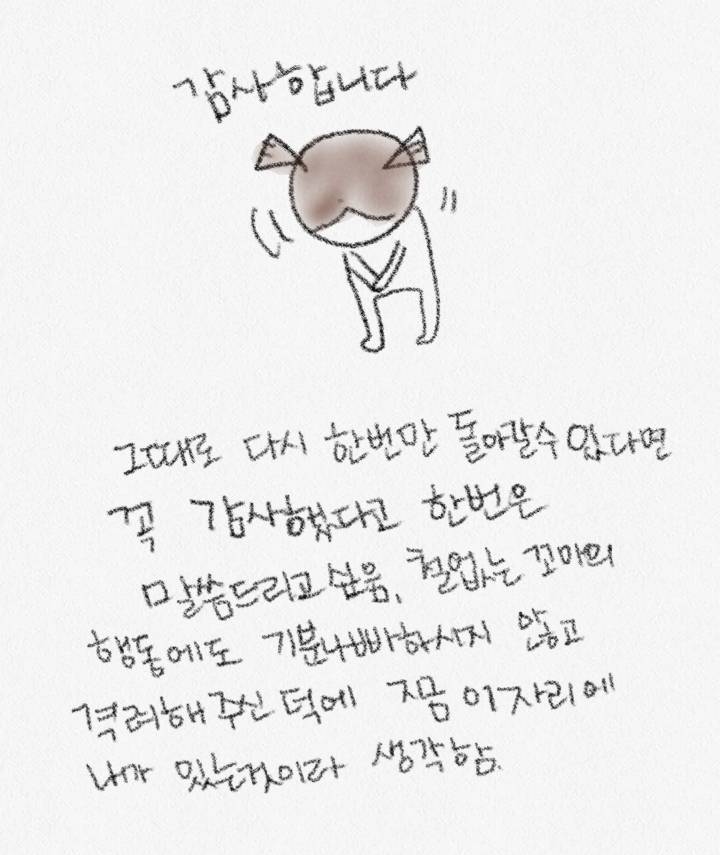 감사합니다
그때로 다시 한번만 돌아갈수 있다면
꼭 감사했다고 한번은
말씀드리고 싶음, 철없는 꼬마의
행동에도 기분나빠하시지 않고
격려해 주신 덕에 지금 이자리에
내가 있는것이라 생각함.